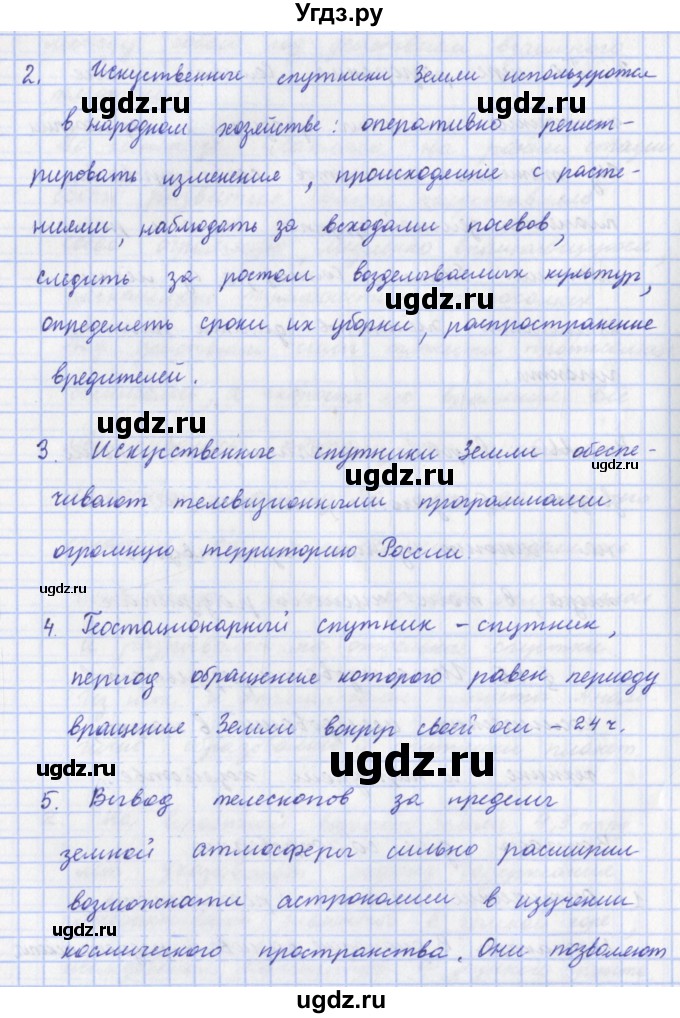 Угдз.ру
2. Искуственные спутники Земли используются
ugdz.ru ugdz.ru
в народном хозяйстве: оперативно регист-
рировать изменения, происходящие с расте-
ниями, наблюдать за всходами посевов,
следить за ростом возделываемых культур,
ugdz.ru
определять сроки их уборки, распространение
вредителей.
ugdz.ru
3. Искусственные спутники Земли обеспе-
ugdz.ru ugdz.ru
чивают телевизионными программами
огромную территорию России.
ugdz.ru
4. Геостационарный спутник – спутник,
период обращения которого равен периоду
вращения Земли вокруг своей оси – 24 ч.
ugdz.ru
ugdz.ru
5. Вывод телескопов за пределы
земной атмосферы сильно расширил
возможности астрономии в изучении
ugdz.ru
космического пространства. Они позволяют
ugdz.ru